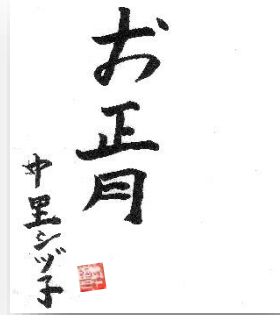 お正月
中里シヅ子